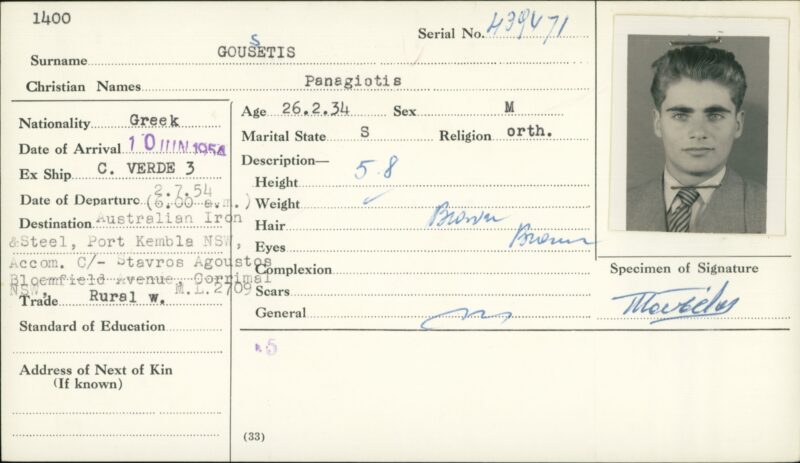 1400
Serial No. 439471
Surname GOUSETIS
S
Christian Names Panagiotis
Nationality Greek
Date of Arrival 10 JUN 1954
Ex Ship C. VERDE 3
Date of Departure 2.7.54 (6.00 a.m.)
Destination Australian Iron
&Steel, Port Kembla NSW,
Accom. C/- Stavros Agoustos
Bloomfield Avenue, Corrimal
NSW, M.L.2709
Trade Rural w.
Standard of Education
Address of Next of Kin
(If known)
Age 26.2.34 Sex M
Marital State S Religion orth.
Description—
Height 5.8
Weight
Hair Brown
Eyes Brown
Complexion
Scars
General
5
(33)
Specimen of Signature